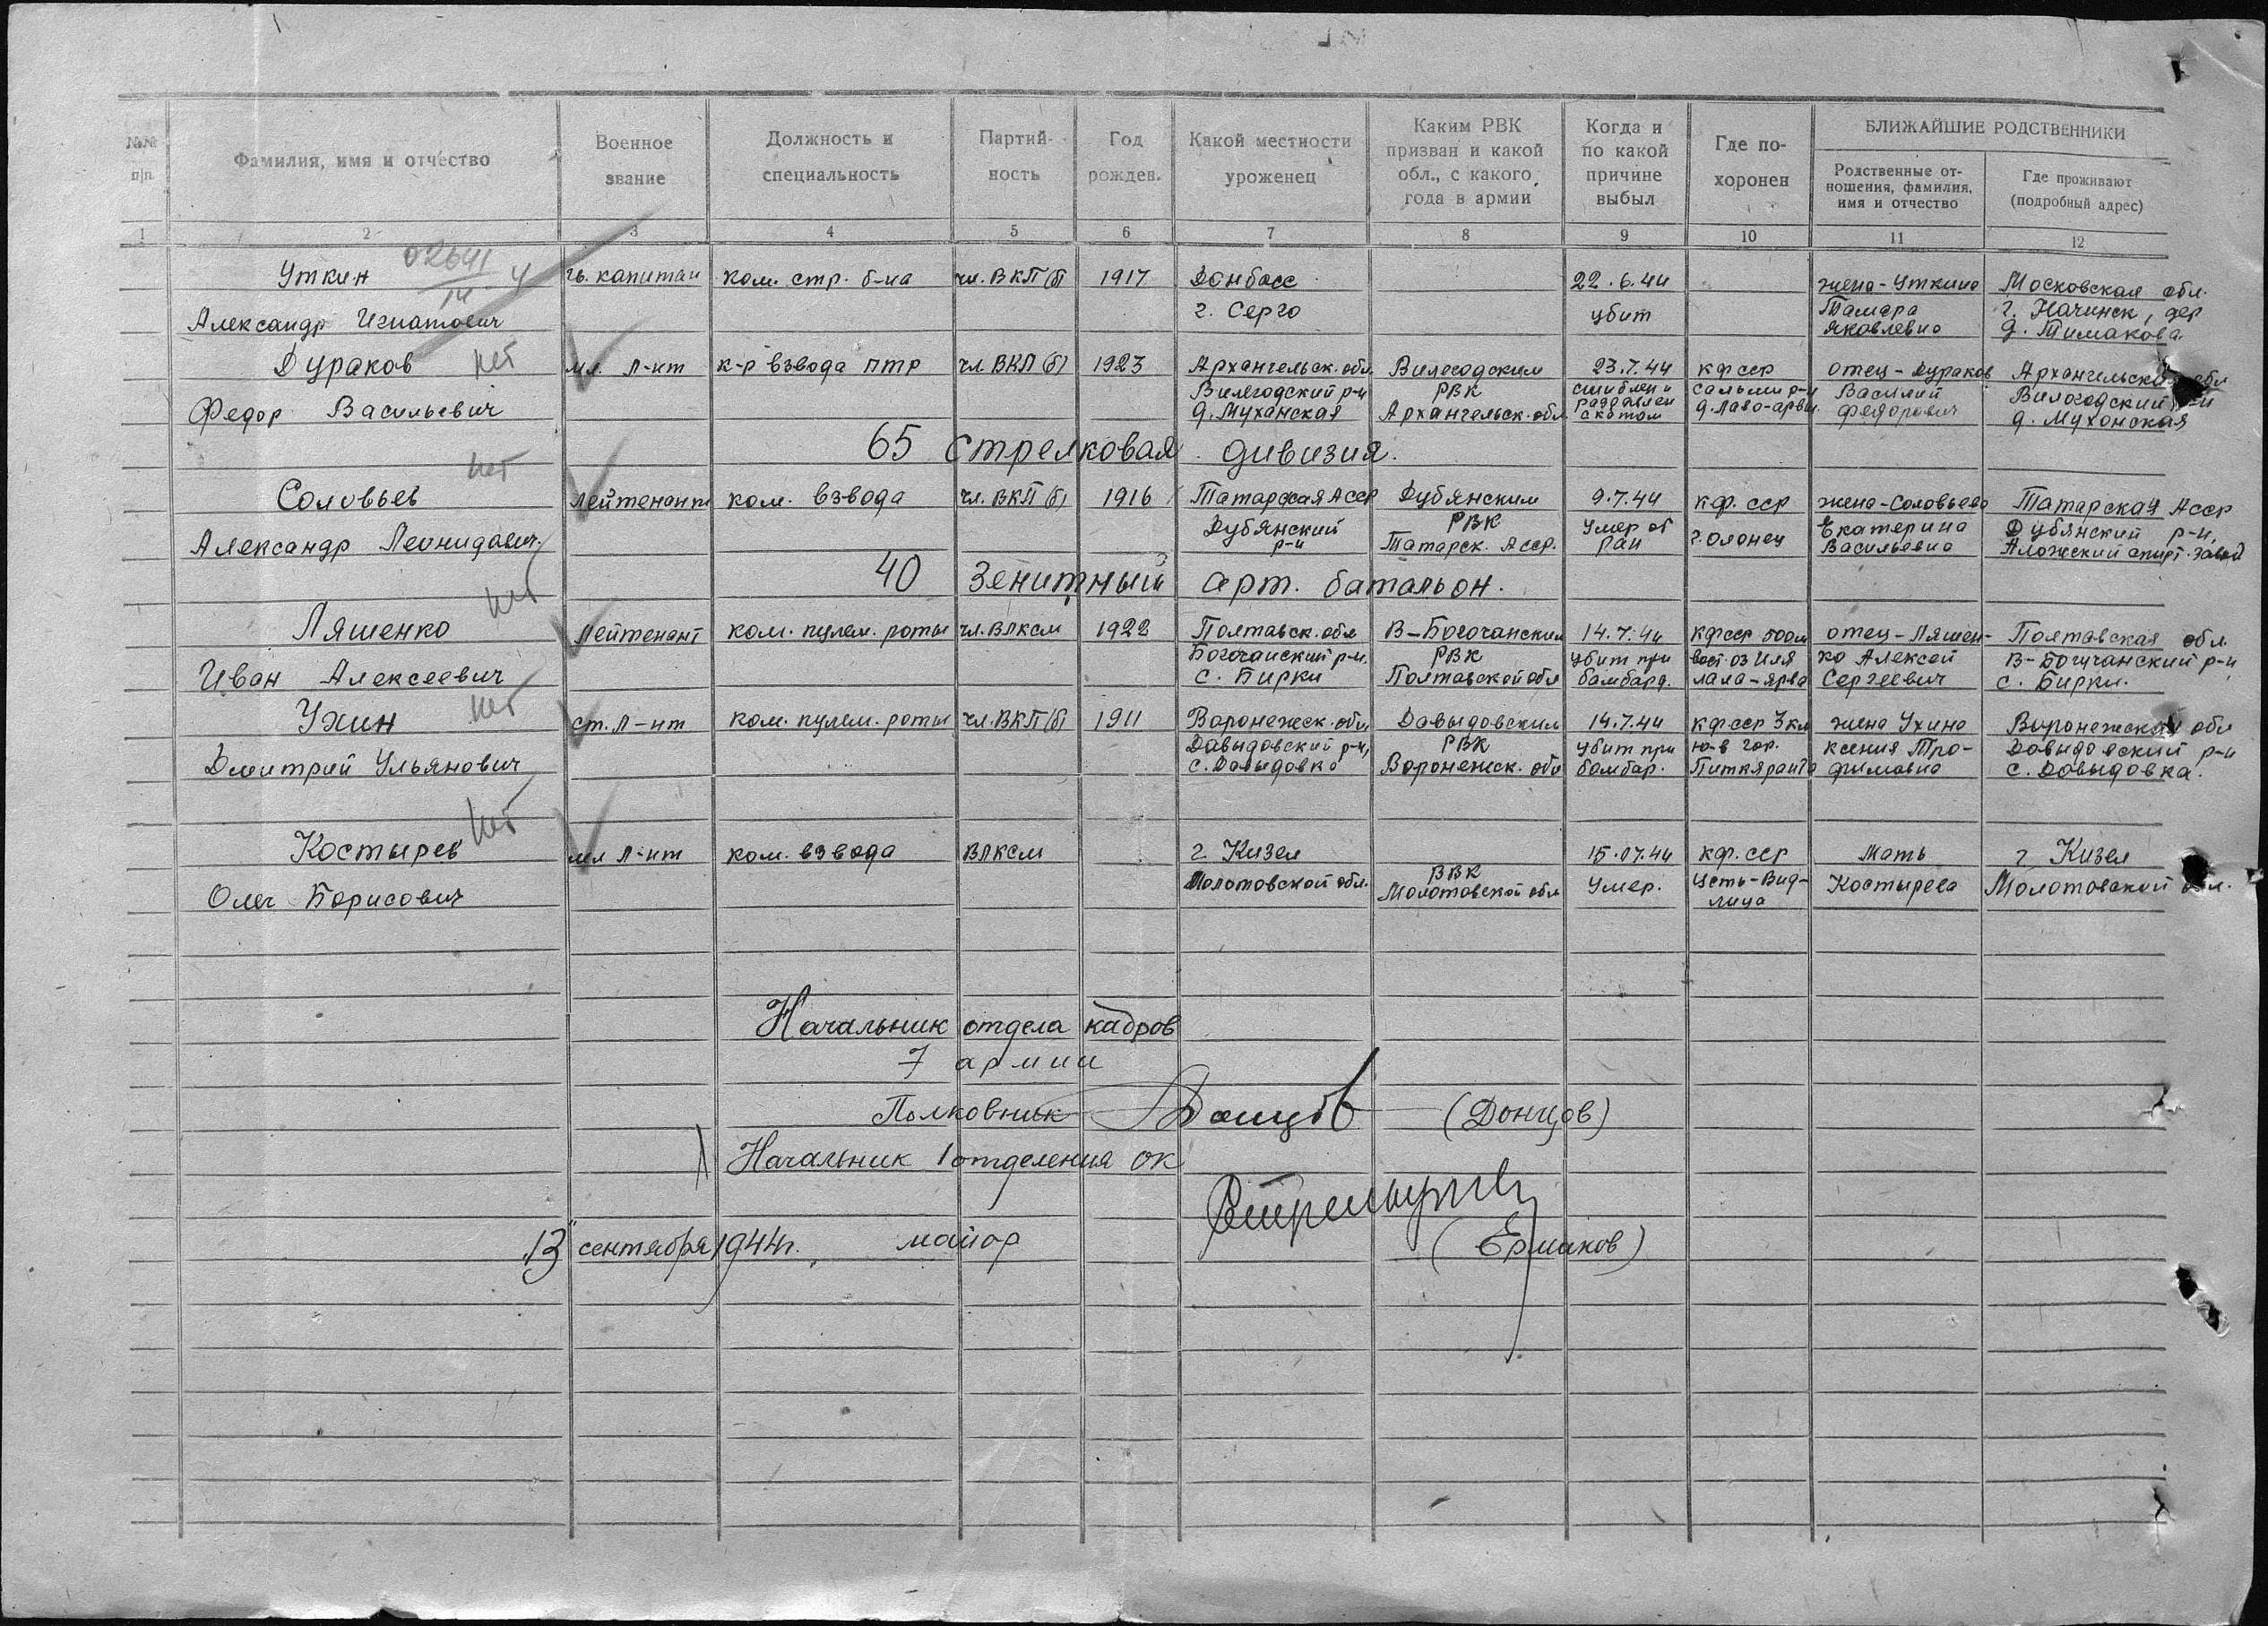 №№ п/п
Фамилия, имя и отчество
Военное звание
Должность и специальность
Партий-ность
Год рожден.
Какой местности уроженец
Каким РВК призван и какой обл., с какого года в армии
Когда и по какой причине выбыл
Где по-хоронен
БЛИЖАЙШИЕ РОДСТВЕННИКИ
Родственные от-ношения, фамилия, имя и отчество
Где проживают (подробный адрес)
1 2 3 4 5 6 7 8 9 10 11 12
02691
14 - У
Уткин гв. капитан ком. стр. б-на чл. ВКП(б) 1917 Донбасс 22.6.44 жена-Уткина Московская обл.
Александр Игнатович г. Серго убит Тамара г. Начинск, дер
Яковлевна д. Тимакова.
Дураков нет мл. л-нт к-р взвода птр чл ВКП(б) 1923 Архангельск. обл. Вилегодским 23.7.44 кф сср отец-Дураков Архангельская обл
Вилегодский р-н РВК сшиблен и сальми р-н Василий Вилегодский р-н
Федор Васильевич д. Муханская Архангельск. обл. раздавлен скотом д. Лаво-ярви. Федорович д. Муханская
65 стрелковая дивизия.
нет
Соловьев лейтенант ком. взвода чл. ВКП(б) 1916 Татарская Асср Дубянским 9.7.44 кф. сср жена-Соловьева Татарская Асср
Дубянский РВК Умер от Екатерина Дубянский р-н,
Александр Леонидович. р-н Татарск. Асср. ран г. Олонец Васильевна спирт. завод
40 зенитный арт. батальон.
нет
Ляшенко Лейтенант ком. пулем. роты чл. Влксм 1922 Полтавск. обл В-Богочанским 14.7.44 кфсср 500м отец-Ляшен- Полтавская обл.
Богочанский р-н. РВК убит при вост. оз Иля ко Алексей В-Богучанский р-н
Иван Алексеевич с. Бирки Полтавской обл бамбард. лала-ярва Сергеевич с. Бирки.
нет
Ухин ст. л-нт ком. пулем. роты чл. ВКП(б) 1911 Воронежск. обл. Давыдовским 14.7.44 кфсср 3 км жена Ухина Воронежская обл
Давыдовский р-н, РВК убит при ю-в гор. ксения Тро- Давыдовский р-н
Дмитрий Ульянович с. Давыдовка Воронежск. обл бомбар. Питкяранта фимовна с. Довыдовка.
нет
Костырев мл л-нт ком. взвода ВЛКСМ г Кизел 15.07.44 кф. сср Мать г Кизел
ВВК
Олег Борисович Молотовской обл. Молотовской обл Умер. Усть-Вид-лица Костырева Молотовской обл.
Начальник отдела кадров
7 армии
Полковник Донцов (Донцов)
Начальник 1 отделения ок
13" сентября 1944г. майор (Ермаков)